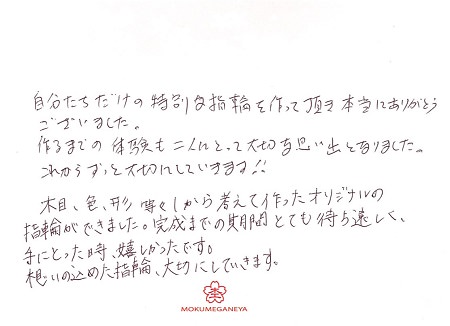 自分たちだけの特別な指輪を作って頂き本当にありがとう
ございました。
作るまでの体験も二人にとって大切な思い出となりました。
これからずっと大切にしていきます!!
木目、色、形 等々しから考えて作ったオリジナルの
指輪ができました。完成までの期間とても待ち遠しく、
手にとった時、嬉しかったです。
想いの込めた指輪、大切にしていきます。
MOKUMEGANEYA